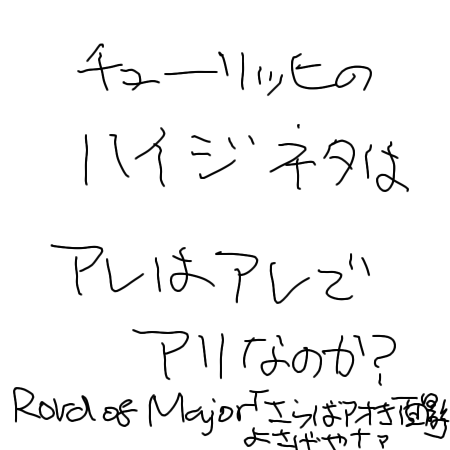 チューリッヒの
ハイジネタは
アレはアレで
アリなのか?
Road of Major「さらばアオき面影
よさげやナァ